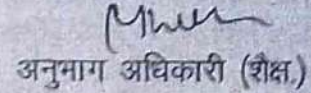 अनुभाग अधिकारी (शैक्ष.)